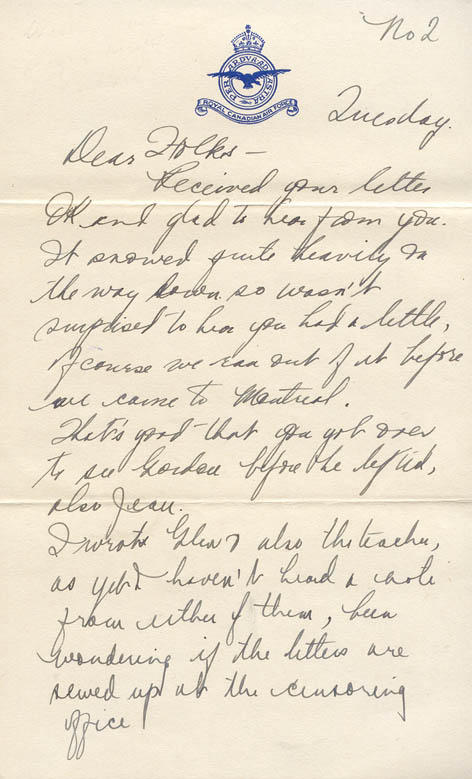 No 2
PER ARDVA AD ASTRA
ROYAL CANADIAN AIR FORCE
Tuesday.
Dear Folks –
Received your letter
OK and glad to hear from you.
It snowed quite heavily on
the way down so wasn't
surprised to hear you had a little,
of course we ran out of it before
we came to Montreal.
That's good that you got over
to see Gordon before he left,
also Jean.
I wrote Glen & also the teacher,
as yet I haven't heard a note
from either of them, been
wondering if the letters are
sewed up at the censoring
office